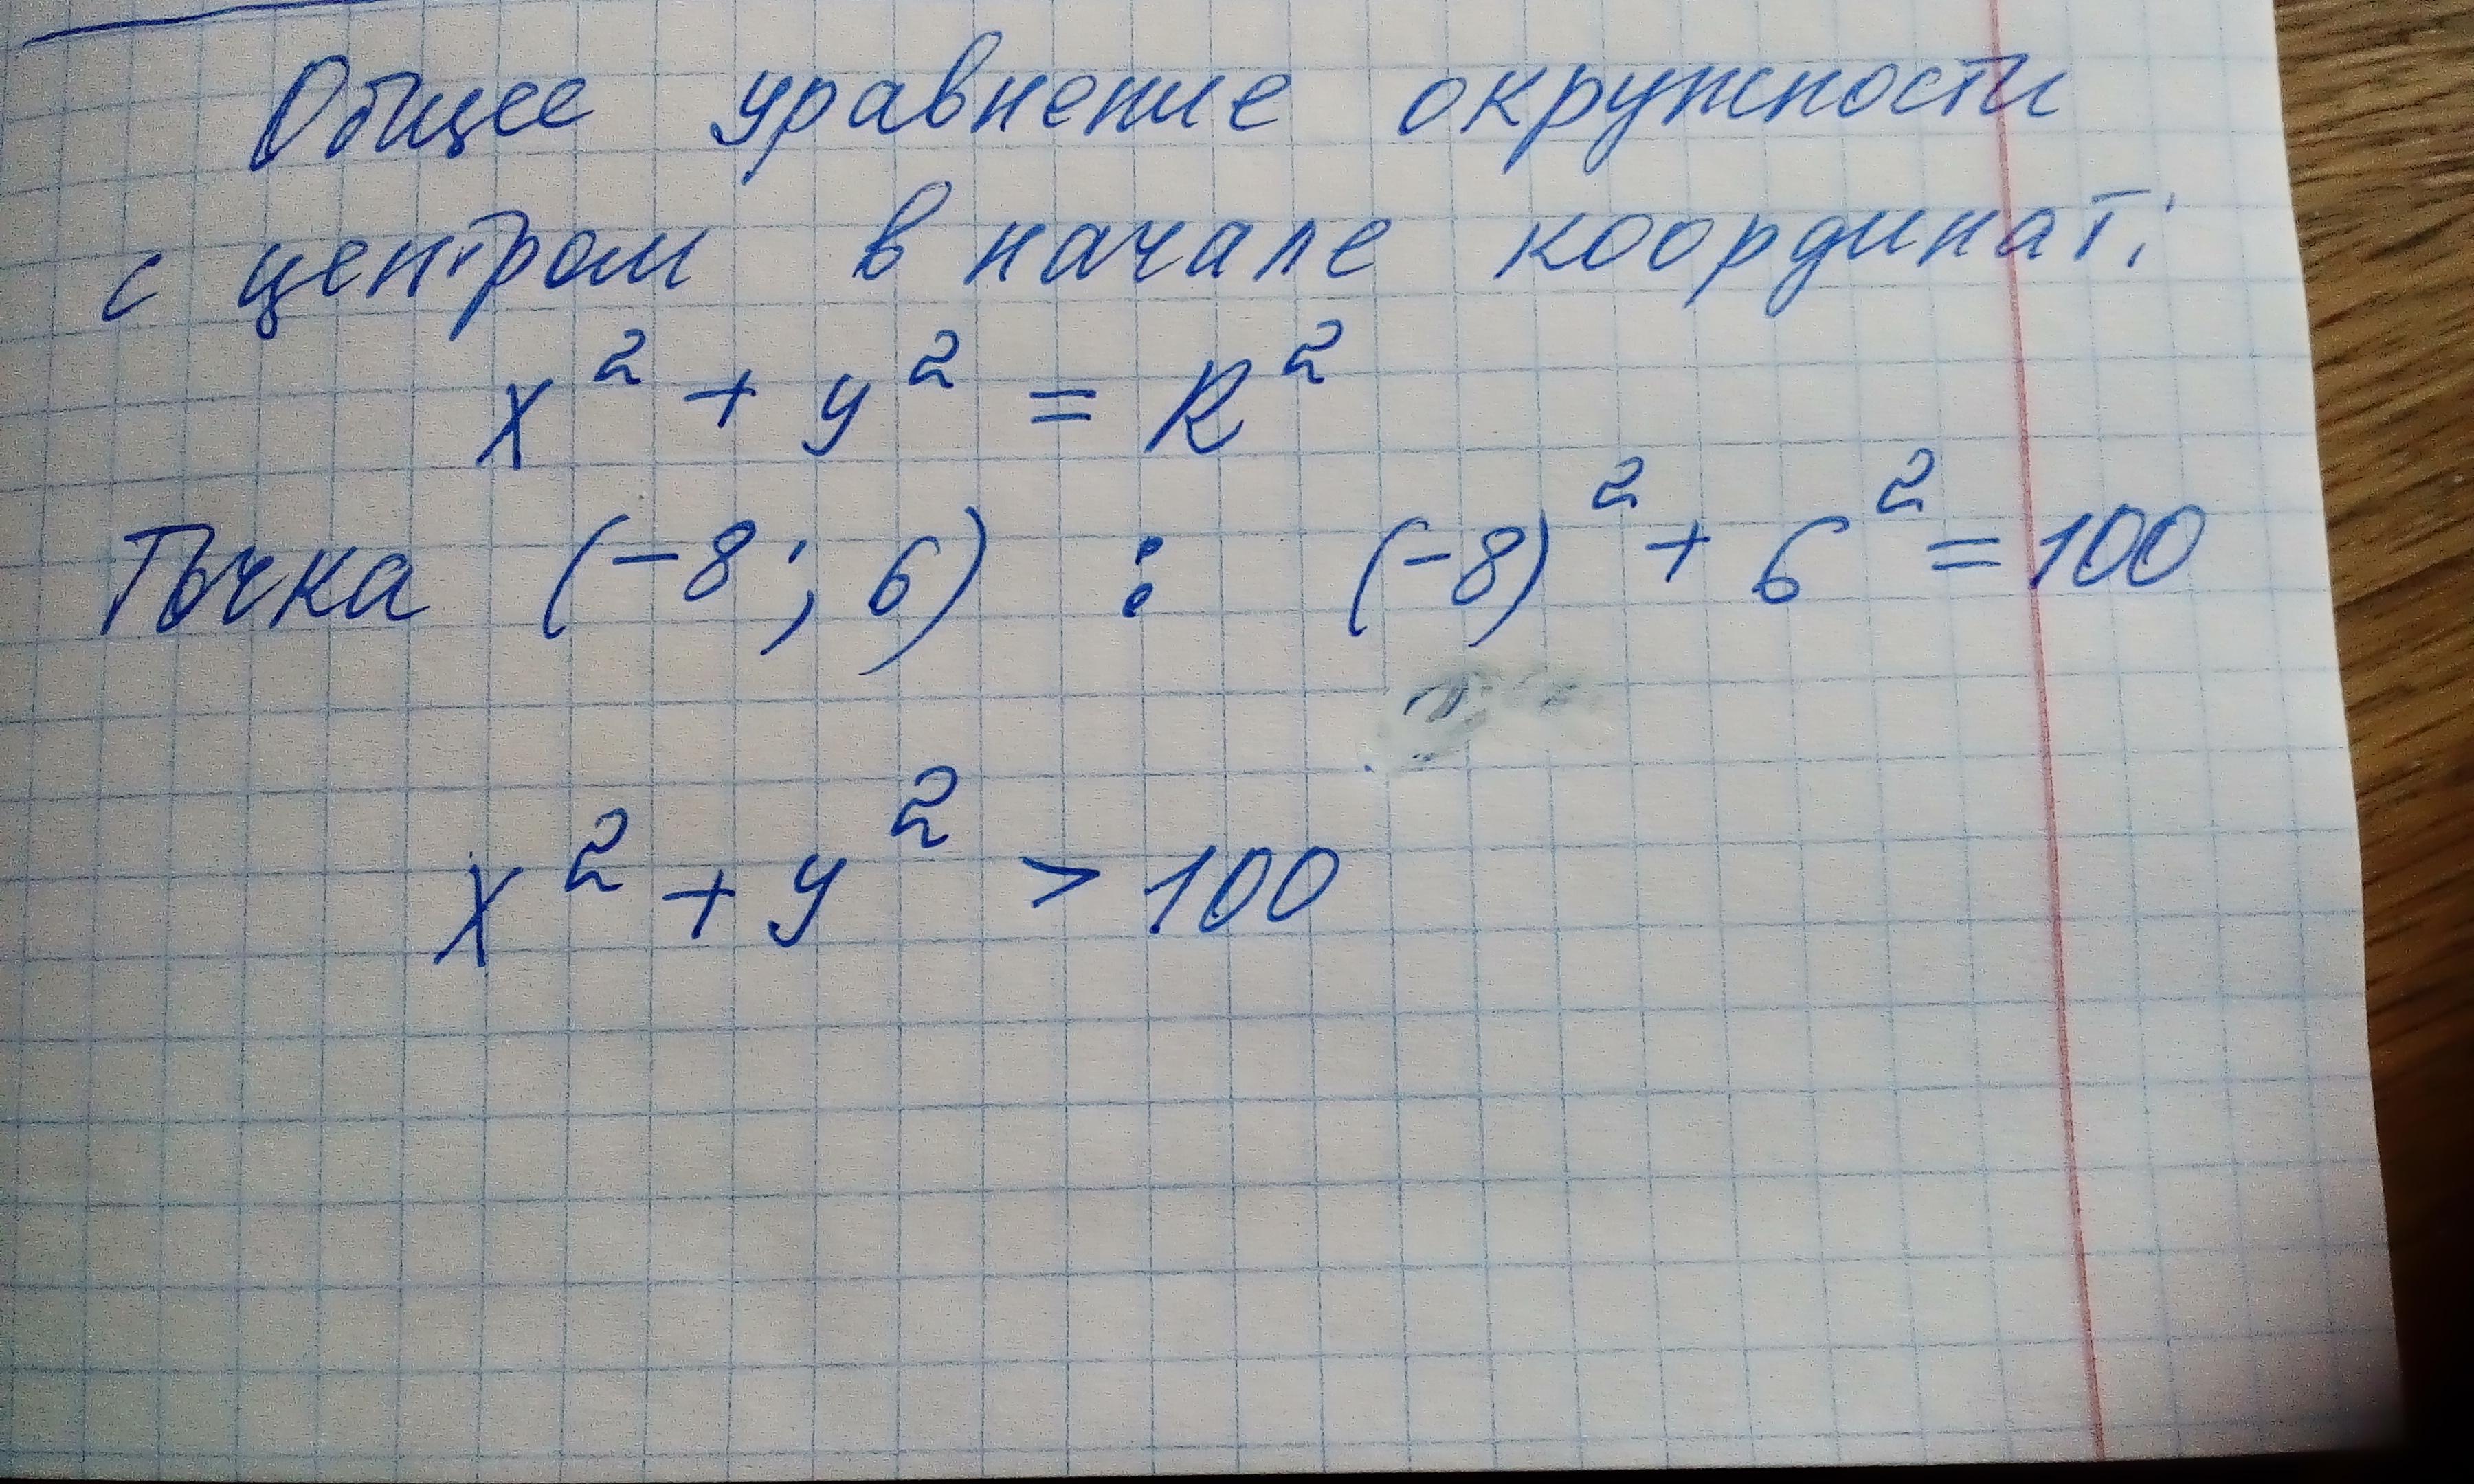 Общее уравнение окружности
с центром в начале координат:
x² + y² = R²
Точка (-8; 6) : (-8)² + 6² = 100
x² + y² > 100